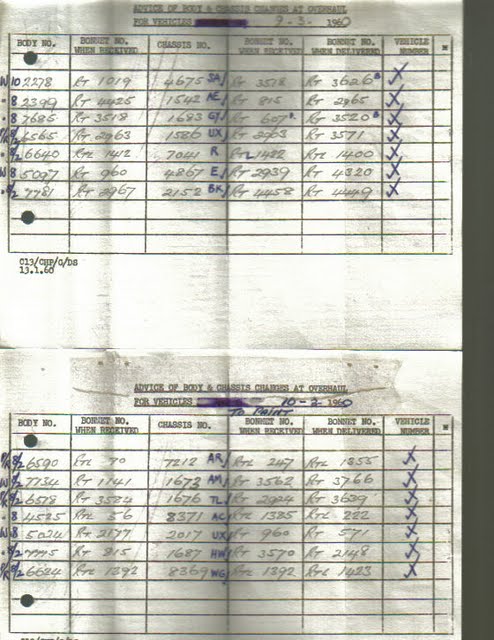 ADVICE OF BODY & CHASSIS CHANGES AT OVERHAUL
FOR VEHICLES 9-3- 1960
BODY NO. BONNET NO. WHEN RECEIVED CHASSIS NO. BONNET NO. WHEN RECEIVED BONNET NO. WHEN DELIVERED VEHICLE NUMBER
W 10 2278 RT 1019 4675 SA/ RT 3518 RT 3626 B X
8 2399 RT 4425 1542 AE/ RT 815 RT 2965 X
8 7685 RT 3518 1683 GY/ RT 607 RT 3520 B X
8/2 6565 RT 2963 1586 UX/ RT 2963 RT 3571 X
8/2 6640 RTL 1412 7041 R/ RTL 1422 RTL 1400 X
W 8 5097 RT 960 4867 E/ RT 2939 RT 4320 X
8/2 7781 RT 2967 2152 BK/ RT 4458 RT 4449 X
C13/CHP/G/DS
13.1.60
ADVICE OF BODY & CHASSIS CHANGES AT OVERHAUL
FOR VEHICLES 10-2- 1960
TO PAINT
BODY NO. BONNET NO. WHEN RECEIVED CHASSIS NO. BONNET NO. WHEN RECEIVED BONNET NO. WHEN DELIVERED VEHICLE NUMBER
8/2 6590 RTL 70 7212 AR/ RTL 247 RTL 1355 X
W 8/2 7734 RT 1141 1673 AM/ RT 3562 RT 3766 X
8/2 6578 RT 3584 1676 TL/ RT 2924 RT 3629 X
8 4585 RTL 56 8371 AC/ RTL 1385 RTL 222 X
W 8 5024 RT 2177 2017 UX/ RT 960 RT 571 X
8/2 7745 RT 815 1687 HW/ RT 3570 RT 2148 X
8/2 6624 RTL 1392 8369 WG/ RTL 1392 RTL 1423 X